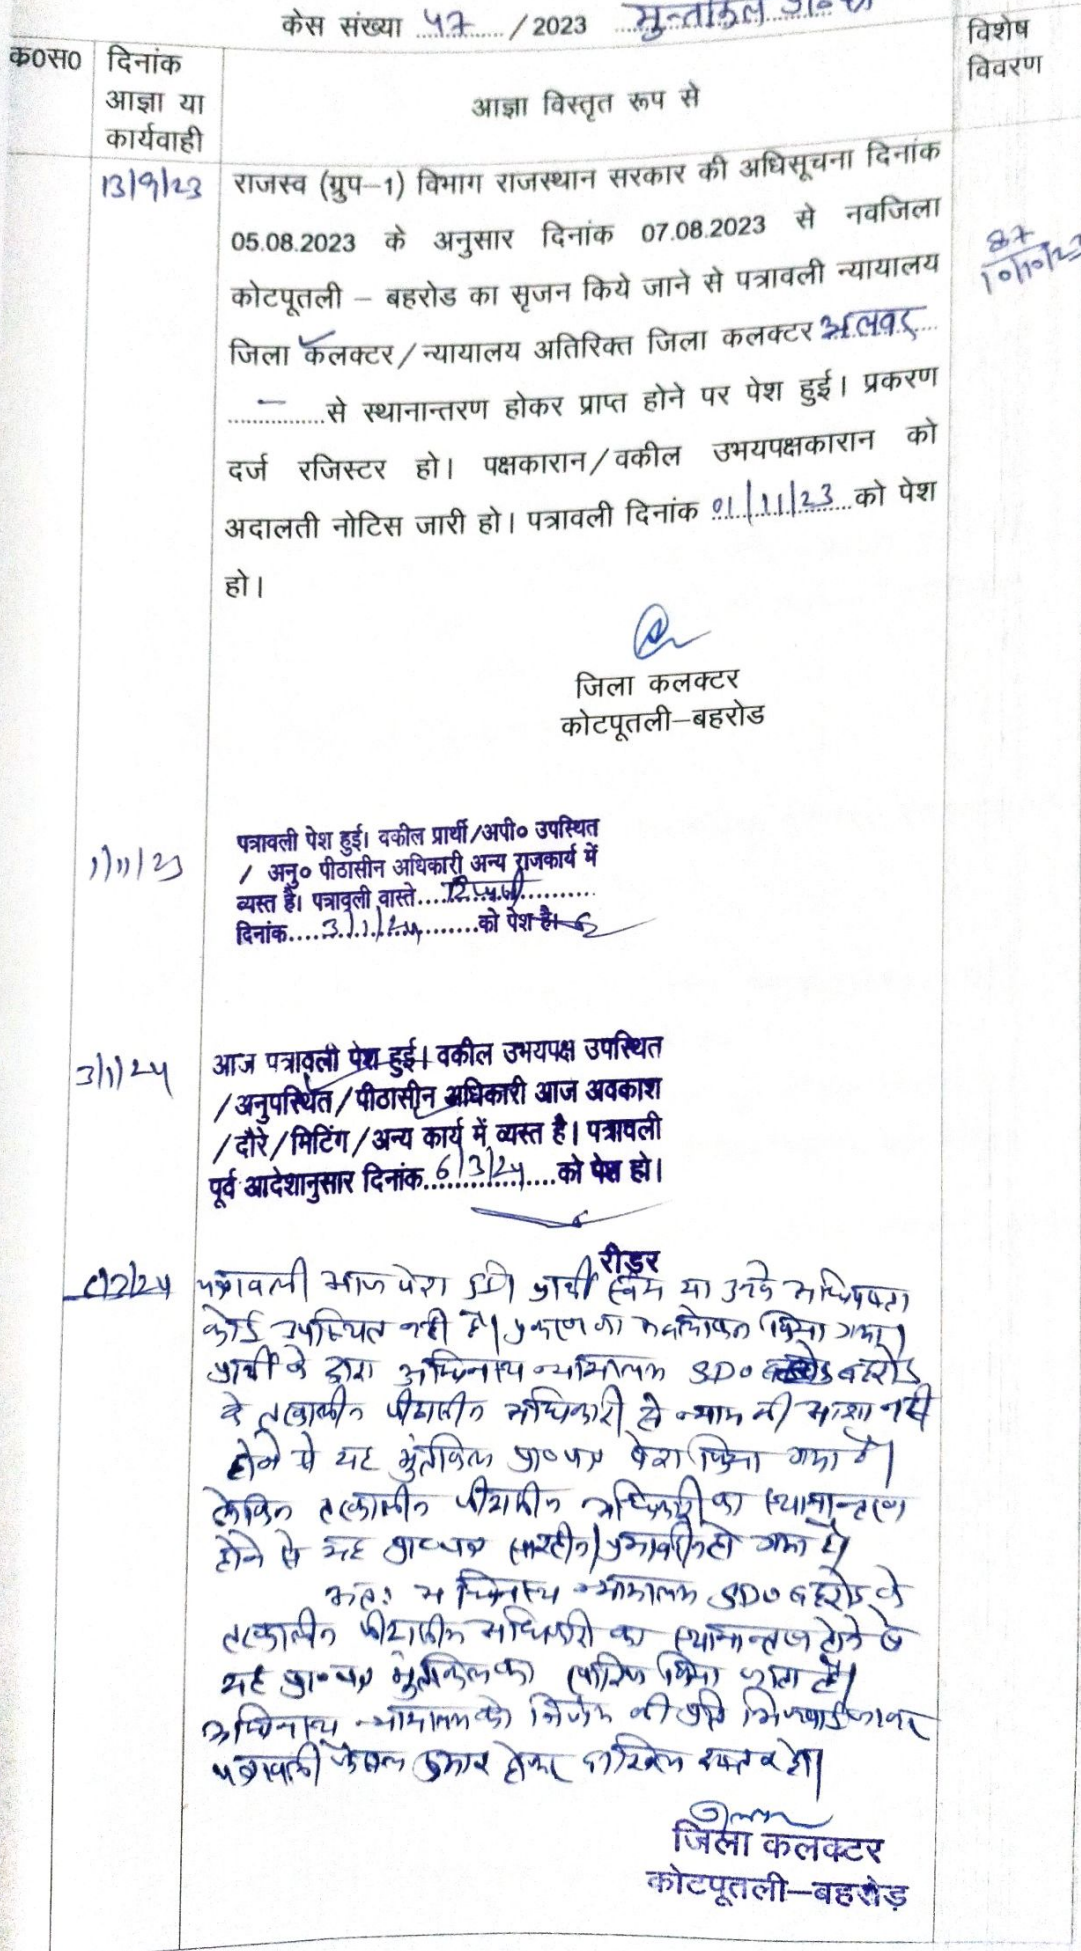 केस संख्या 47 / 2023 मुन्तकिल
क०स० दिनांक आज्ञा या कार्यवाही
आज्ञा विस्तृत रूप से
विशेष विवरण
13/9/23
राजस्व (ग्रुप–1) विभाग राजस्थान सरकार की अधिसूचना दिनांक
05.08.2023 के अनुसार दिनांक 07.08.2023 से नवजिला
कोटपूतली – बहरोड का सृजन किये जाने से पत्रावली न्यायालय
जिला कलक्टर/न्यायालय अतिरिक्त जिला कलक्टर अलवर
................से स्थानान्तरण होकर प्राप्त होने पर पेश हुई। प्रकरण
दर्ज रजिस्टर हो। पक्षकारान/वकील उभयपक्षकारान को
अदालती नोटिस जारी हो। पत्रावली दिनांक 01/11/23 को पेश
हो।
87
10/10/23
जिला कलक्टर
कोटपूतली–बहरोड
1/11/23
पत्रावली पेश हुई। वकील प्रार्थी/अपी० उपस्थित
/ अनु० पीठासीन अधिकारी अन्य राजकार्य में
व्यस्त है। पत्रावली वास्ते....................
दिनांक....3/1/24....को पेश है।
3/1/24
आज पत्रावली पेश हुई। वकील उभयपक्ष उपस्थित
/अनुपस्थित/पीठासीन अधिकारी आज अवकाश
/दौरे/मिटिंग/अन्य कार्य में व्यस्त है। पत्रावली
पूर्व आदेशानुसार दिनांक..6/3/24....को पेश हो।
रीडर
पत्रावली आज पेश हुई। प्रार्थी स्वंय या उनके अधिवक्ता
कोई उपस्थित नही है। प्रकरण का अवलोकन किया गया।
प्रार्थी के द्वारा अधिनस्थ न्यायालय SDO बहरोड
के तत्कालीन पीठासीन अधिकारी से न्याय की आशा नही
होने से यह मुंतकिल प्रा०पत्र पेश किया गया है।
लेकिन तत्कालीन पीठासीन अधिकारी का स्थानान्तरण
होने से यह प्रा०पत्र (सारहीन) हो गया है।
अतः अधिनस्थ न्यायालय SDO बहरोड के
तत्कालीन पीठासीन अधिकारी का स्थानान्तरण होने से
यह प्रा०पत्र मुंतकिल का खारिज किया जाता है।
अधिनस्थ न्यायालय को निर्णय की प्रति भिजवाई जाकर
पत्रावली फैसल शुमार होकर दाखिल दफ्तर हो।
जिला कलक्टर
कोटपूतली–बहरोड़